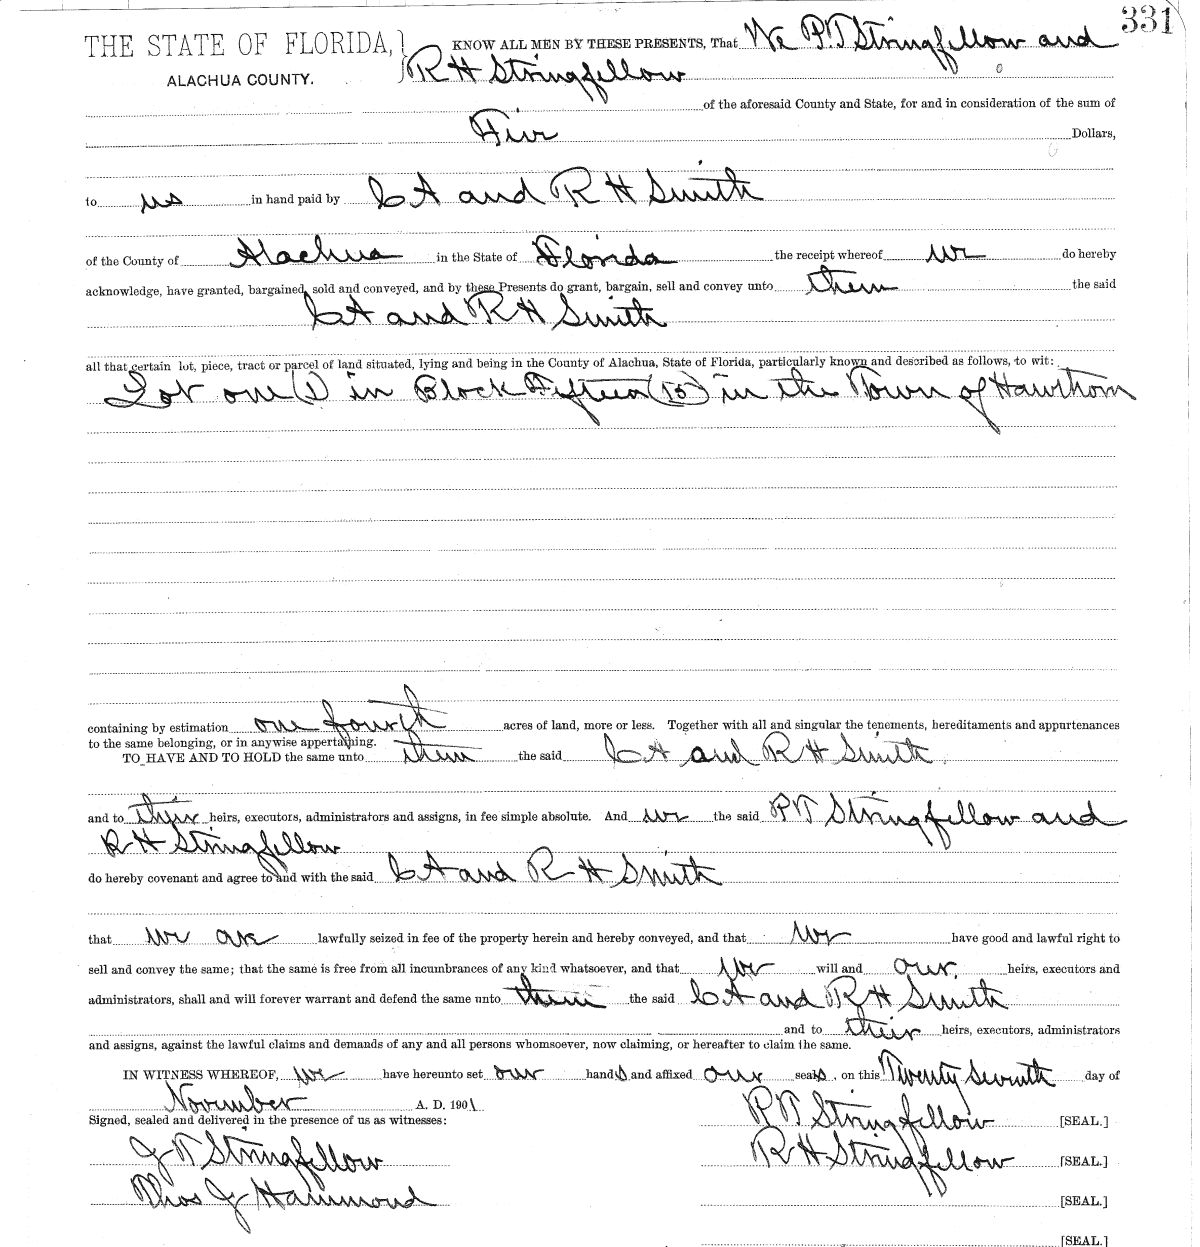 331
THE STATE OF FLORIDA, KNOW ALL MEN BY THESE PRESENTS, That We P T Stringfellow and
ALACHUA COUNTY. R H Stringfellow
of the aforesaid County and State, for and in consideration of the sum of
Five Dollars,
to us in hand paid by C A and R H Smith
of the County of Alachua in the State of Florida the receipt whereof we do hereby
acknowledge, have granted, bargained, sold and conveyed, and by these Presents do grant, bargain, sell and convey unto them the said
C A and R H Smith
all that certain lot, piece, tract or parcel of land situated, lying and being in the County of Alachua, State of Florida, particularly known and described as follows, to wit:
Lot one (1) in Block Fifteen (15) in the Town of Hawthorn
containing by estimation one fourth acres of land, more or less. Together with all and singular the tenements, hereditaments and appurtenances
to the same belonging, or in anywise appertaining.
TO HAVE AND TO HOLD the same unto them the said C A and R H Smith
and to their heirs, executors, administrators and assigns, in fee simple absolute. And we the said P T Stringfellow and
R H Stringfellow
do hereby covenant and agree to and with the said C A and R H Smith
that we are lawfully seized in fee of the property herein and hereby conveyed, and that we have good and lawful right to
sell and convey the same; that the same is free from all incumbrances of any kind whatsoever, and that we will and our heirs, executors and
administrators, shall and will forever warrant and defend the same unto them the said C A and R H Smith
and to their heirs, executors, administrators
and assigns, against the lawful claims and demands of any and all persons whomsoever, now claiming, or hereafter to claim the same.
IN WITNESS WHEREOF, we have hereunto set our hands and affixed our seals, on this Twenty Seventh day of
November A. D. 1901
Signed, sealed and delivered in the presence of us as witnesses: P T Stringfellow [SEAL.]
J T Stringfellow R H Stringfellow [SEAL.]
Thos J Hammond [SEAL.]
[SEAL.]